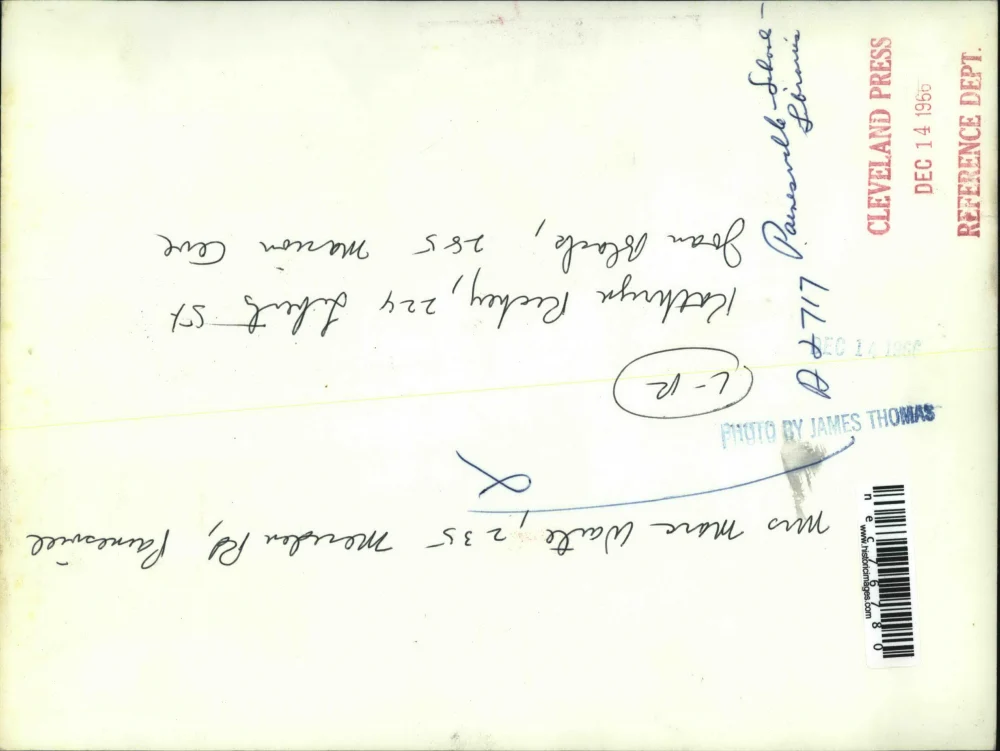 Mrs Marc Waite, 235 Meriden Rd, Painesville
L-R
Kathryn Richey, 224 Liberty St
Joan Black, 285 Marion Ave
A2717 Painesville - School -
Libraries
CLEVELAND PRESS
DEC 14 1966
REFERENCE DEPT.
DEC 14 1966
PHOTO BY JAMES THOMAS
www.historicimages.com
nec76780